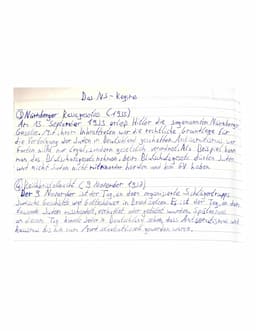 Das NS-Regime
① Nürnberger Rassegesetze (1935)
Am 15. September 1935 erließ Hitler die sogenannten Nürnberger
Gesetze. Mit ihrem Inkrafttreten war die rechtliche Grundlage für
die Verfolgung der Juden in Deutschland geschaffen. Antisemitismus war
nicht nur legal, sondern gesetzlich verordnet. Als Beispiel kann
man das Blutschutzgesetz nehmen, beim Blutschutzgesetz dürfen Juden
und nicht Juden nicht miteinander heiraten und kein GV haben.
④ Reichskristallnacht (9 November 1938)
Der 9 November ist der Tag, an dem organisierte Schlägertrupps
jüdische Geschäfte und Gotteshäuser in Brand setzen. Es ist der Tag, an dem
tausende Juden misshandelt, verhaftet oder getötet wurden. Spätestens
an diesem Tag konnte jeder in Deutschland sehen, dass Antisemitismus und
Rassismus bis hin zum Mord staatsoffiziell geworden waren.